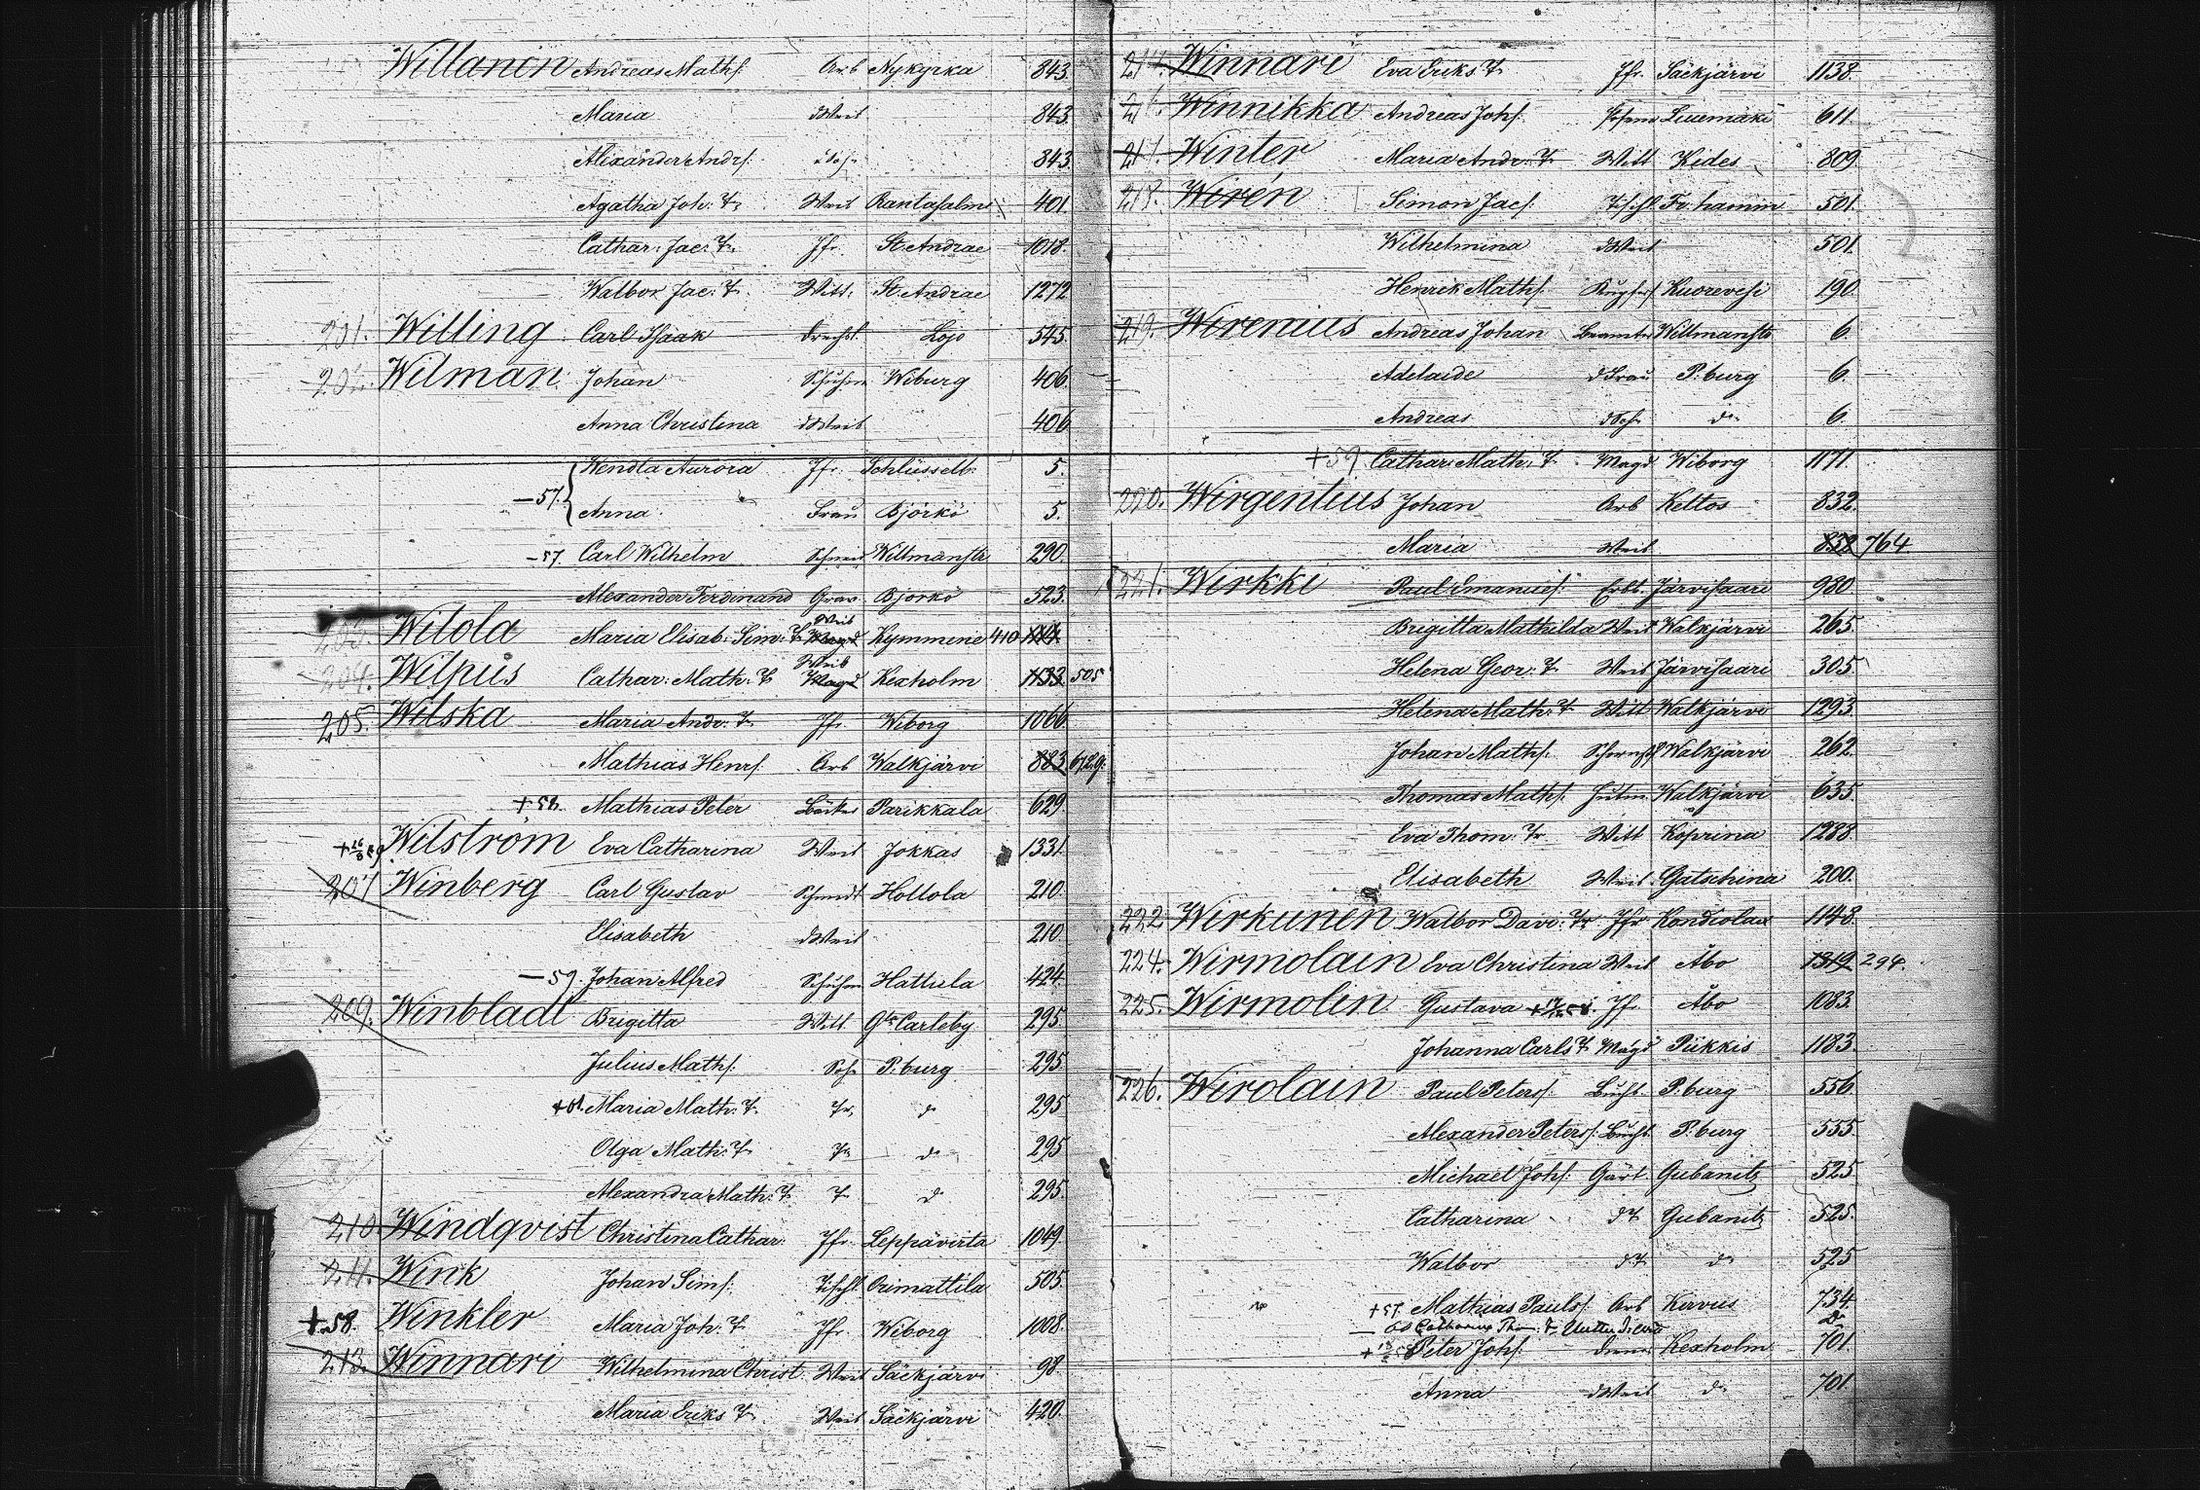 Willanen Andreas Maths. Arb Nykyrka 843.
Maria dWeib 843.
Alexander Andrs. dSohn 843.
Agatha Joh: Tr. Weib Rantasalmi 401.
Cathar: Jac: Tr. Jfr. St. Andrae 1018.
Walbor Jac: Tr. Witt: St. Andrae 1272
201. Willing Carl Isaak Drechsl. Lojo 545.
202. Wilman Johan Schuhm Wiburg 406.
Anna Christina dWeib 406
Hendla Aurora Jfr. Schlüsselb: 5.
-57. Anna Frau Björkö 5.
-57. Carl Wilhelm Willmanstr 290.
Alexander Ferdinand Grav. Bjorkö 523.
203. Wilola Maria Elisab: Sim: Tr Weib Magd Kymmene 410
204. Wilpus Cathar: Math: Tr Weib Magd Kexholm 1133. 505
205. Wilska Maria Andr: Tr. Jfr. Wiborg 1066.
Mathias Henrs. Arb Walkjärvi 883
+58. Mathias Peter Bäcker Parikkala 629.
Wilström Eva Catharina Weib Jokkas 1331.
207. Winberg Carl Gustav Schmidt Hollola 210.
Elisabeth dWeib 210.
-59. Johan Alfred Schuhm Hattula 424.
209. Winbladt Brigitta Witt Gle Carleby 295.
Julius Maths. Sohn P:burg 295.
+61. Maria Math: Tr. Tr. do 295
Olga Math: Tr. Tr. do 295
Alexandra Math: Tr. Tr. do 295.
210 Windqvist Christina Cathar: Jfr. Leppävirta 1049.
211. Wink Johan Sims. Tischl. Orimattila 505.
+58. Winkler Maria Joh: Tr. Jfr. Wiborg 1008.
213. Winnari Wilhelmina Christ. Weib Säckjärvi 98.
Maria Eriks Tr. Weib Säckjärvi 420.
Winnari Eva Eriks Tr. Jfr. Säckjärvi 1138.
Winnikka Andreas Johs. Liuemäki 611.
217. Winter Maria Andr: Tr. Witt Kides 809.
218. Wirén Simon Jacs. Tischl. Fr:hamm 501.
Wilhelmina dWeib 501.
Henrik Maths. Kupfers. Kuorevesi 190.
219. Wirenius Andreas Johan Beamter Willmanstr 6.
Adelaide dFrau P:burg 6.
Andreas dSohn do 6.
+59. Cathar: Math: Tr. Magd Wiborg 1171.
220. Wirgentius Johan Arb Keltos 832.
Maria Weib 832 764
221. Wirkki Paul Emanuels. Erbt. Järvisaari 980.
Brigitta Mathilda Weib Walkjärvi 265.
Helena Geor: Tr. Weib Järvisaari 305.
Helena Math: Tr. Witt Walkjärvi 1293.
Johan Maths. Schornstf Walkjärvi 262.
Thomas Maths. Fuhrm. Walkjärvi 635.
Eva Thom: Tr. Witt Koprina 1288.
Elisabeth Weib Gatschina 200.
222. Wirkunen Walbor Davi: Tr Jfr Kondiolax 1148.
224. Wirmolain Eva Christina Weib Åbo 1319 294.
225. Wirmolin Gustava Jfr. Åbo 1083.
Johanna Carls Tr. Magd Piikkis 1183.
226. Wirolain Paul Peters. Buchb. P:burg 556.
Alexander Peters. Buchb. P:burg 555.
Michael Johs. Gärt. Gubanitz 525.
Catharina dTr Gubanitz 525.
Walbor dTr do 525
+57. Mathias Pauls. Arb Kirvus 734.
-60 Catharina Tho: Tr. do
Peter Johs. Diener Kexholm 701.
Anna dWeib do 701.